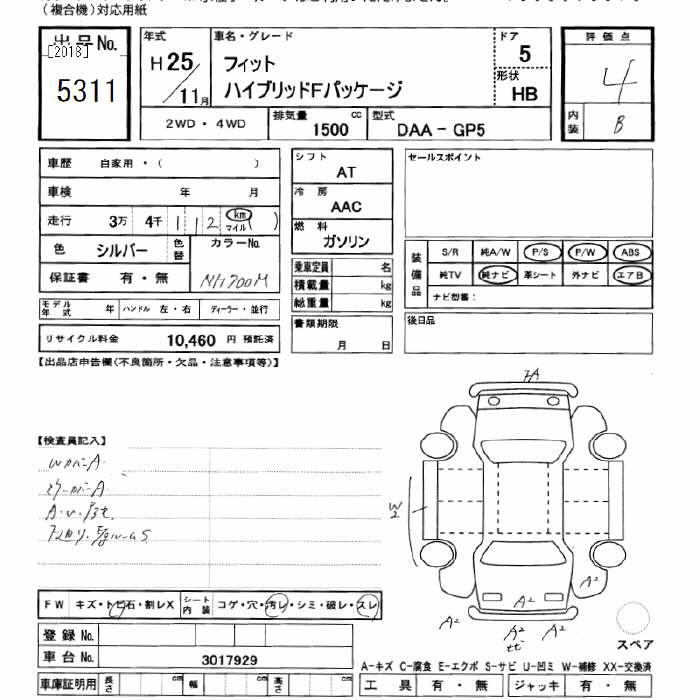 (複合機)対応用紙
出品No.
[2018]
5311
年式
H25/11月
車名・グレード
フィット
ハイブリッドFパッケージ
ドア
5
形状
HB
評価点
4
内装
B
2WD・4WD
排気量
1500 cc
型式
DAA-GP5
車歴 自家用・( )
車検 年 月
走行 3万 4千 112 km マイル ( )
色 シルバー 色替 カラーNo.
NH700M
保証書 有・無
モデル年式 年 ハンドル 左・右 ディーラー・並行
リサイクル料金 10,460 円 預託済
シフト
AT
冷房
AAC
燃料
ガソリン
乗車定員 名
積載量 kg
総重量 kg
書類期限
月 日
セールスポイント
装備品
S/R 純A/W P/S P/W ABS
純TV 純ナビ 革シート 外ナビ エアB
ナビ型番:
後日品
【出品店申告欄(不良箇所・欠品・注意事項等)】
【検査員記入】
WカバーA
ミラーカバーA
FW キズ・トビ石・割レX シート内装 コゲ・穴・汚レ・シミ・破レ・スレ
登録No.
車台No. 3017929
車庫証明用 長さ cm 幅 cm 高さ cm
W2
A2
A2
A2
A2
A2
スペア
A-キズ C-腐食 E-エクボ S-サビ U-凹ミ W-補修 XX-交換済
工具 有・無 ジャッキ 有・無